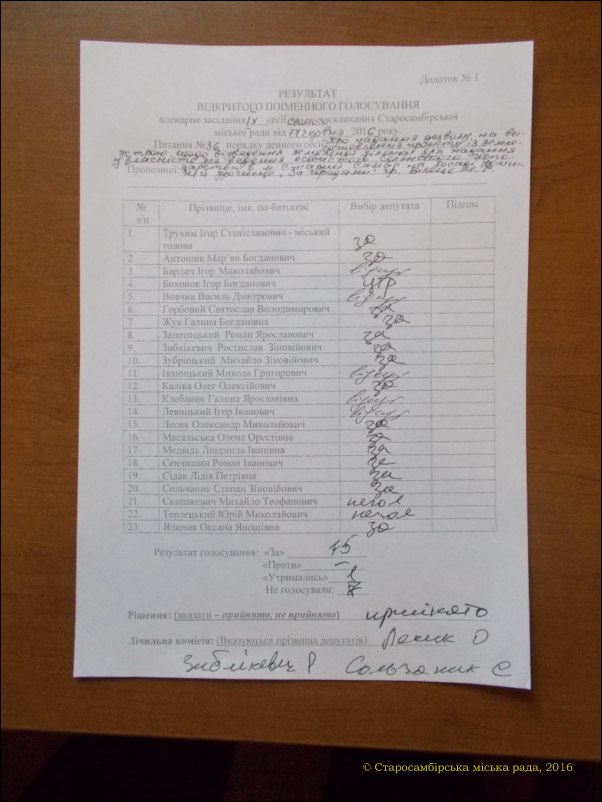 Додаток № 1
РЕЗУЛЬТАТ
ВІДКРИТОГО ПОІМЕННОГО ГОЛОСУВАННЯ
пленарне засідання IV сесії сьомого скликання Старосамбірської
міської ради від 17 червня 2016 року.
Питання № 36 порядку денного сесії: Про надання дозволу на ви-
готовлення проекту із земле-
устрою щодо відведення земельної ділянки для надання
у власність для ведення особистого селянського
Пропозиції
№ з/п Прізвище, імя, по-батькові Вибір депутата Підпис
1. Трухим Ігор Станіславович - міський
голова за
2. Антошик Мар’ян Богданович за
3. Бардич Ігор Миколайович відсут
4. Бохонок Ігор Богданович утр
5. Вовчик Василь Дмитрович відсут
6. Горбовий Святослав Володимирович за
7 Жук Галина Богданівна за
8. Запотоцький Роман Ярославович за
9. Зиблікевич Ростислав Зіновійович за
10. Зубрицький Михайло Зіновійович за
11. Іваницький Микола Григорович відсут
12. Каліка Олег Олексійович за
13. Клебаник Галина Ярославівна відсут
14. Левицький Ігор Іванович відсут
15. Лесик Олександр Миколайович за
16. Масальська Олена Орестівна за
17. Медвідь Людмила Іванівна за
18. Сенчишин Роман Іванович за
19. Сідак Лідія Петрівна за
20. Сольчаник Степан Зіновійович за
21. Скопакевич Михайло Теофанович негол
22. Терлецький Юрій Миколайович негол
23. Япиник Оксана Яношівна за
Результат голосування: «За» 15
«Проти» –
«Утримались» 1
Не голосували: 7
Рішення: (вказати – прийнято, не прийнято) прийнято
Лічильна комісія: (Вказуються прізвища депутатів) Лесик О
Зиблікевич Р Сольчаник С
© Старосамбірська міська рада, 2016